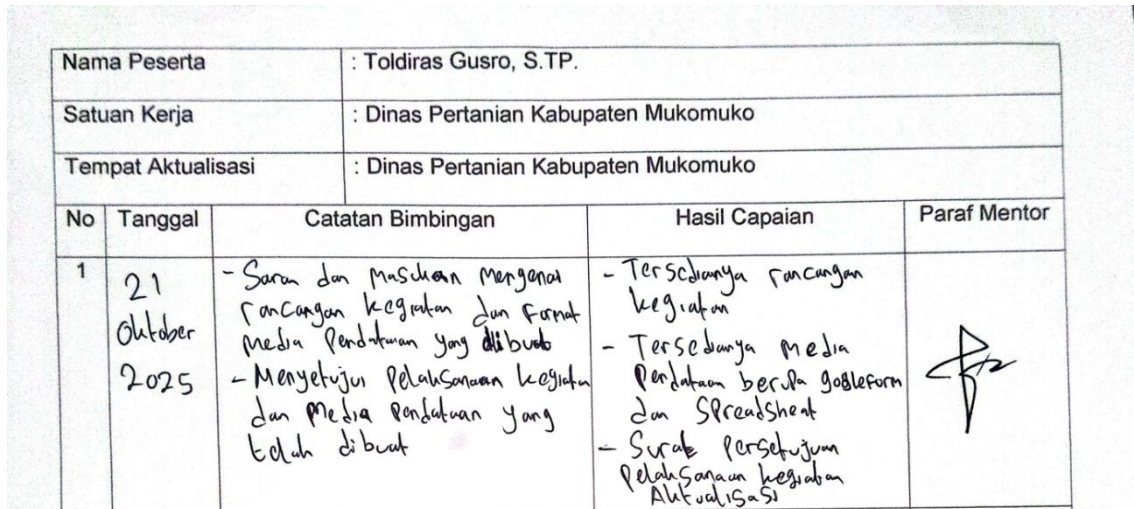 Nama Peserta : Toldiras Gusro, S.TP.
Satuan Kerja : Dinas Pertanian Kabupaten Mukomuko
Tempat Aktualisasi : Dinas Pertanian Kabupaten Mukomuko
No Tanggal Catatan Bimbingan Hasil Capaian Paraf Mentor
1
21
Oktober
2025
- Saran dan Masukan Mengenai
rancangan kegiatan dan Format
Media Pendataan yang dibuat
- Menyetujui Pelaksanaan kegiatan
dan Media Pendataan yang
telah dibuat
- Tersedianya rancangan
kegiatan
- Tersedianya Media
Pendataan berupa googleform
dan Spreadsheat
- Surat Persetujuan
Pelaksanaan kegiatan
Aktualisasi